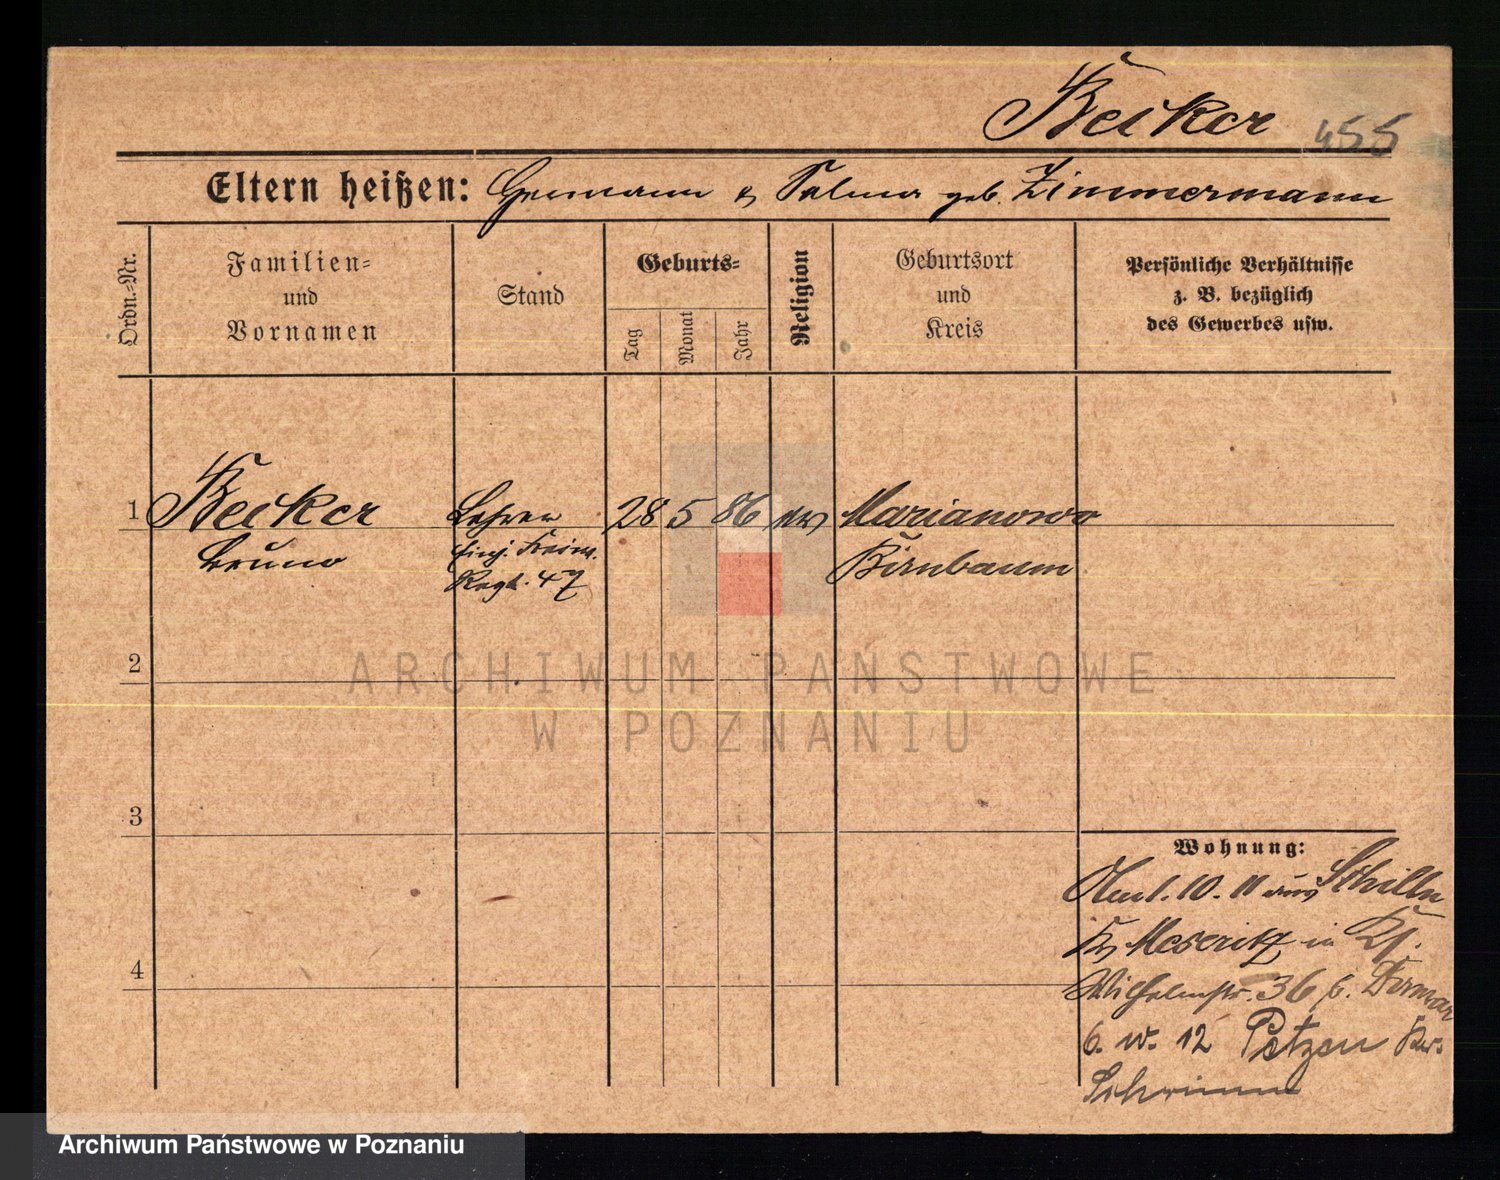 Becker 455
Eltern heißen: Hermann & Selma geb. Zimmermann
Ordn.-Nr.
Familien=
und
Vornamen
Stand
Geburts=
Tag
Monat
Jahr
Religion
Geburtsort
und
Kreis
Persönliche Verhältnisse
z. B. bezüglich
des Gewerbes usw.
1 Becker Lehrer 28 5 86 ev Marianowo
Bruno Einj. Freiw. Birnbaum
Regt. 47
2
3
4
Wohnung:
10. 11 aus Schilln
Kr Meseritz in
Wilhelmstr. 36 b.
6. 12 Petzen Kr.
Schrimm
ARCHIWUM PAŃSTWOWE
W POZNANIU
Archiwum Państwowe w Poznaniu